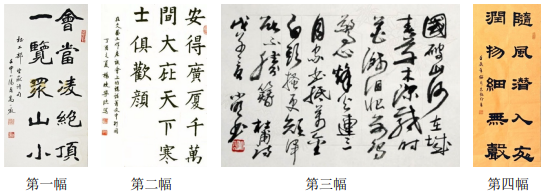 會當凌絕頂
一覽眾山小
安得廣廈千萬
間大庇天下寒
士俱歡顏
國破山河在城
春草木深感時
花濺淚恨別鳥
驚心烽火連三
月家書抵萬金
白頭搔更短渾
欲不勝簪 杜甫詩
隨風潛入夜
潤物細無聲
第一幅
第二幅
第三幅
第四幅